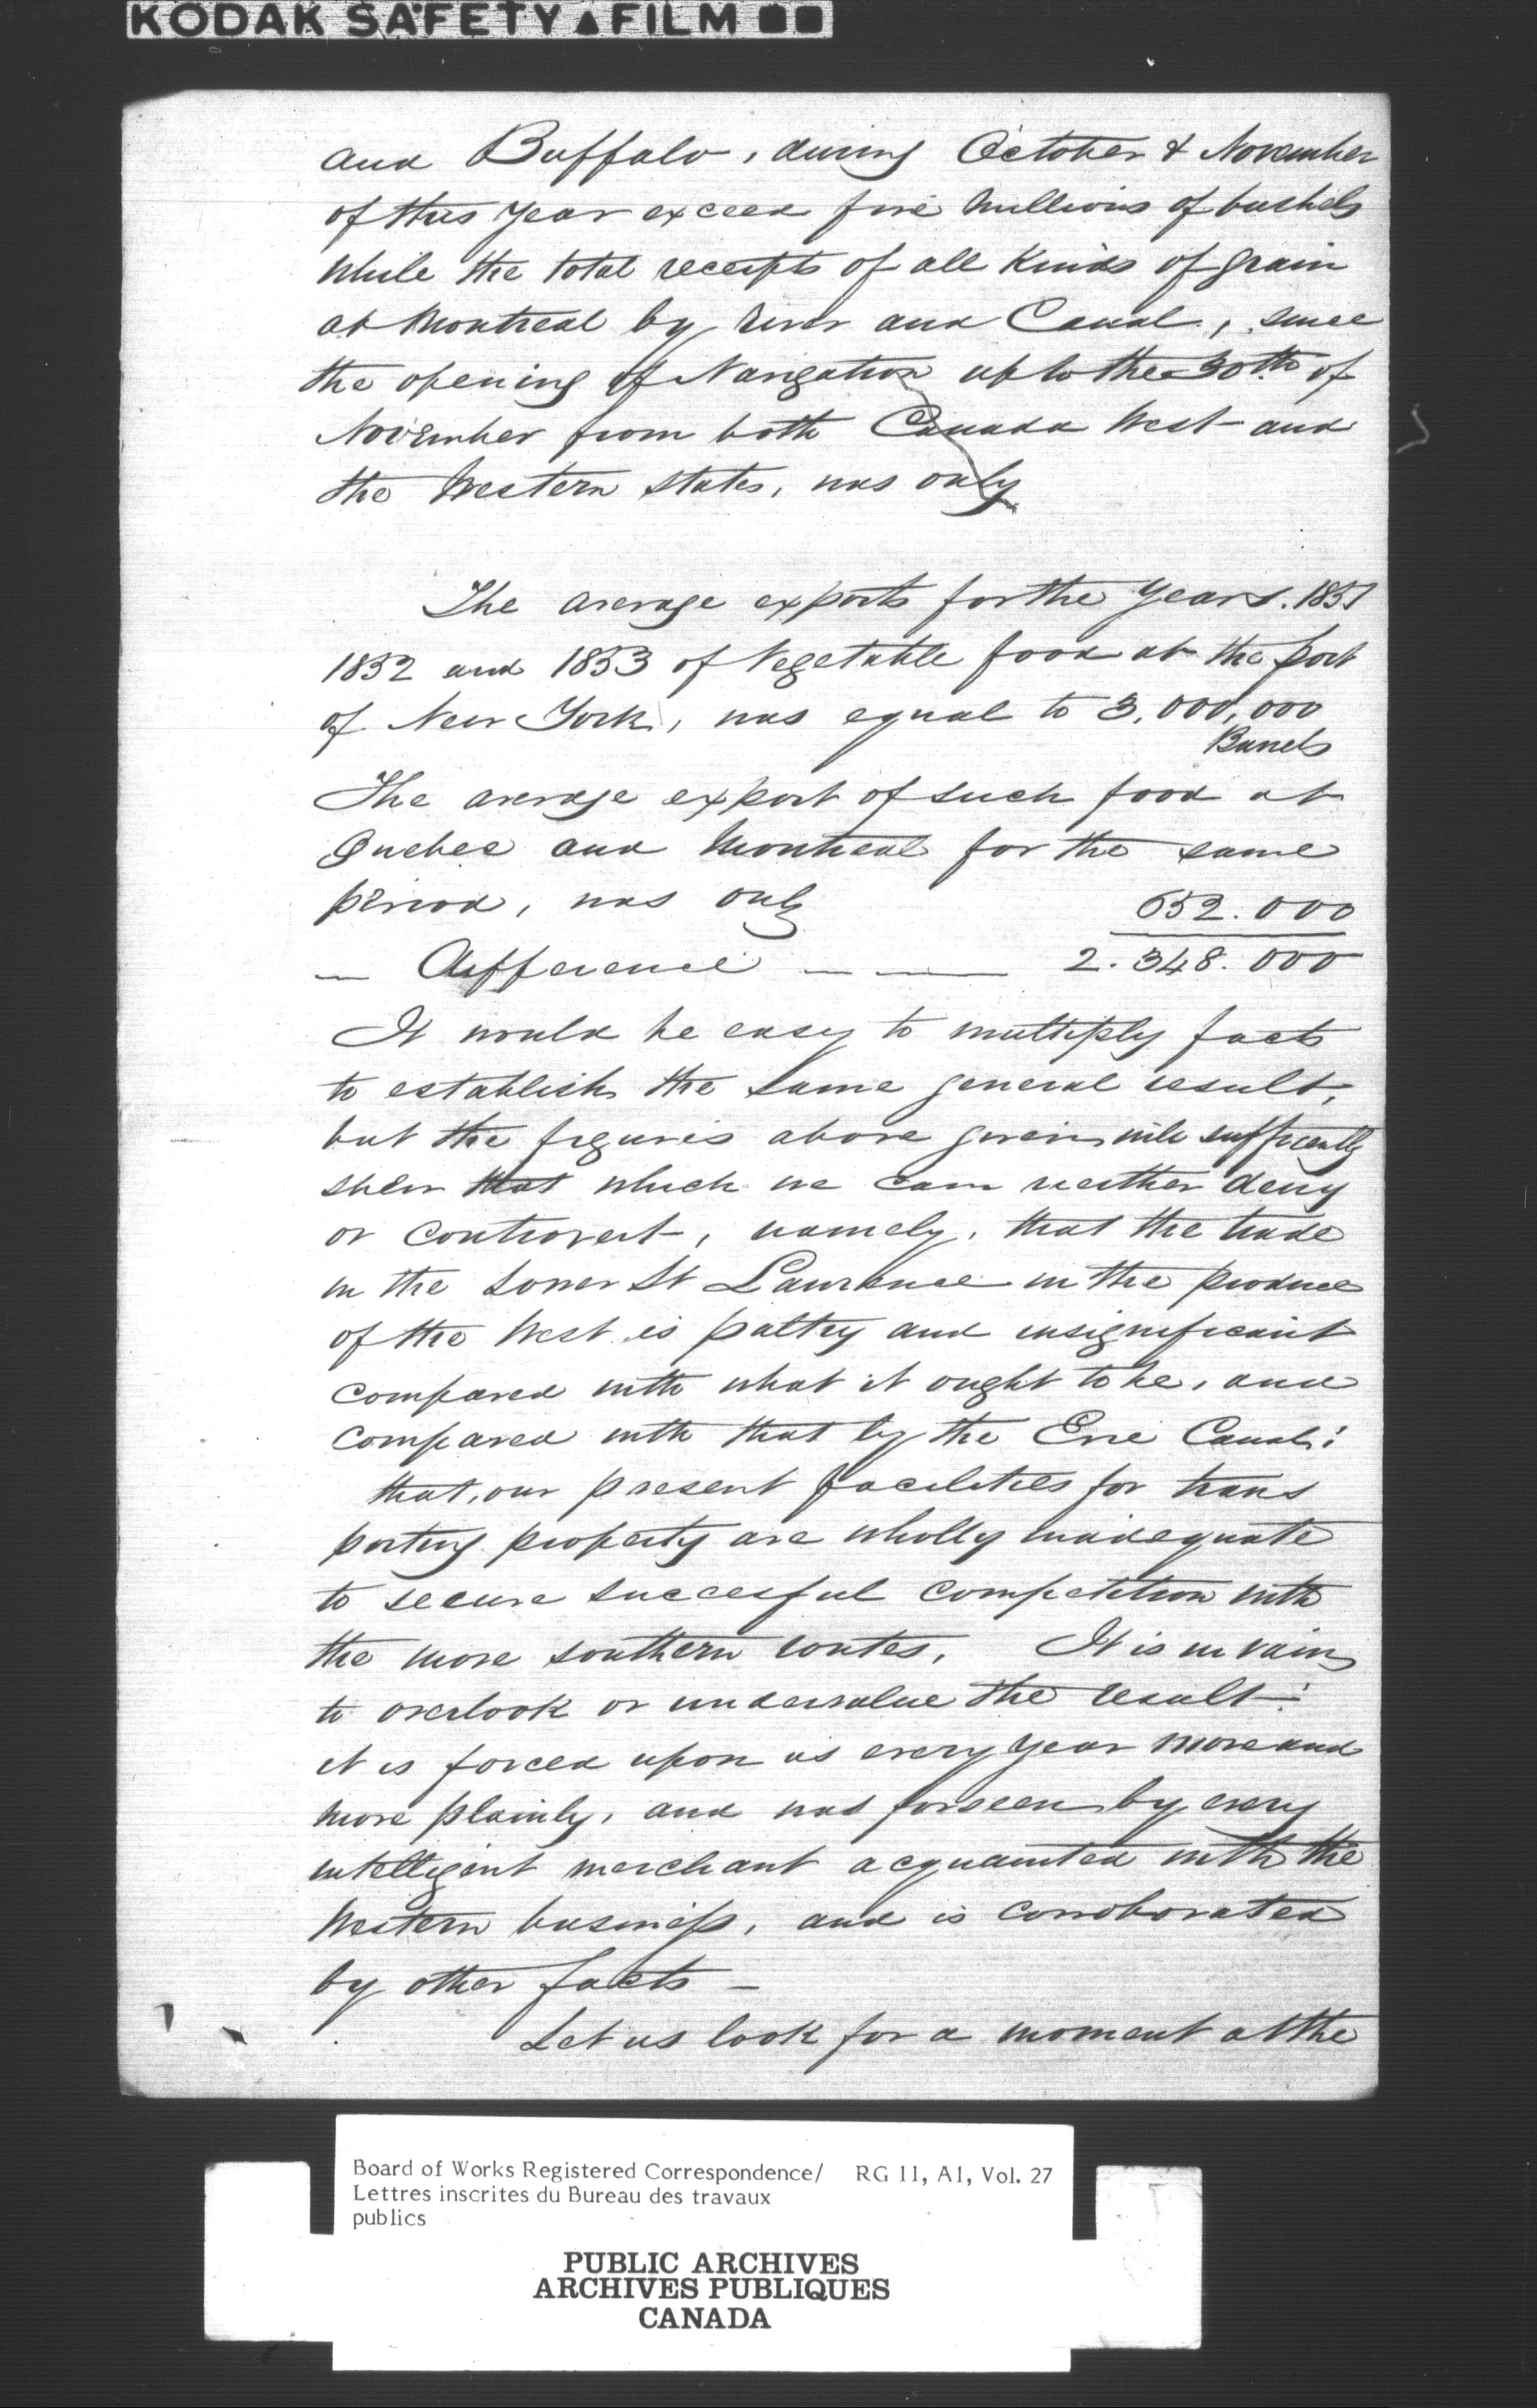 KODAK SAFETY FILM
and Buffalo, during October & November
of this Year exceed five Millions of bushels
While the total receipts of all Kinds of Grain
at Montreal by River and Canal, since
the opening of Navigation up to the 30th of
November from both Canada West and
the Western States, was only
The average exports for the Years. 1851
1852 and 1853 of Vegetable food at the port
of New York, was equal to 3,000,000
Barrels
The average export of such food at
Quebec and Montreal for the same
period, was only 652.000
— Difference — — 2.348.000
It would be easy to multiply facts
to establish the same general result,
but the figures above given will sufficently
shew that which we can neither deny
or controvert, namely, that the trade
in the Lower St Lawrence in the produce
of the West is paltry and insignificant
compared with what it ought to be, and
compared with that by the Erie Canal:
that, our present facilities for trans
porting property are wholly inadequate
to secure succesful competition with
the more southern routes. It is in vain
to overlook or undervalue the result:
it is forced upon us every year more and
more plainly, and was forseen by every
intelligent merchant acquainted with the
Western business, and is corroborated
by other facts —
Let us look for a moment at the
Board of Works Registered Correspondence/ RG 11, A1, Vol. 27
Lettres inscrites du Bureau des travaux
publics
PUBLIC ARCHIVES
ARCHIVES PUBLIQUES
CANADA